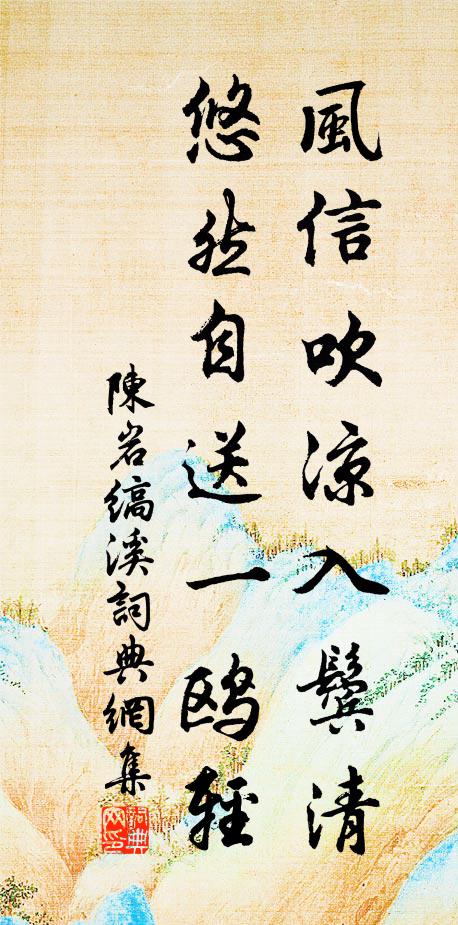 風信吹涼入鬢清
悠然自送一鸥輕
陳岩縞溪詞典網集
詞典